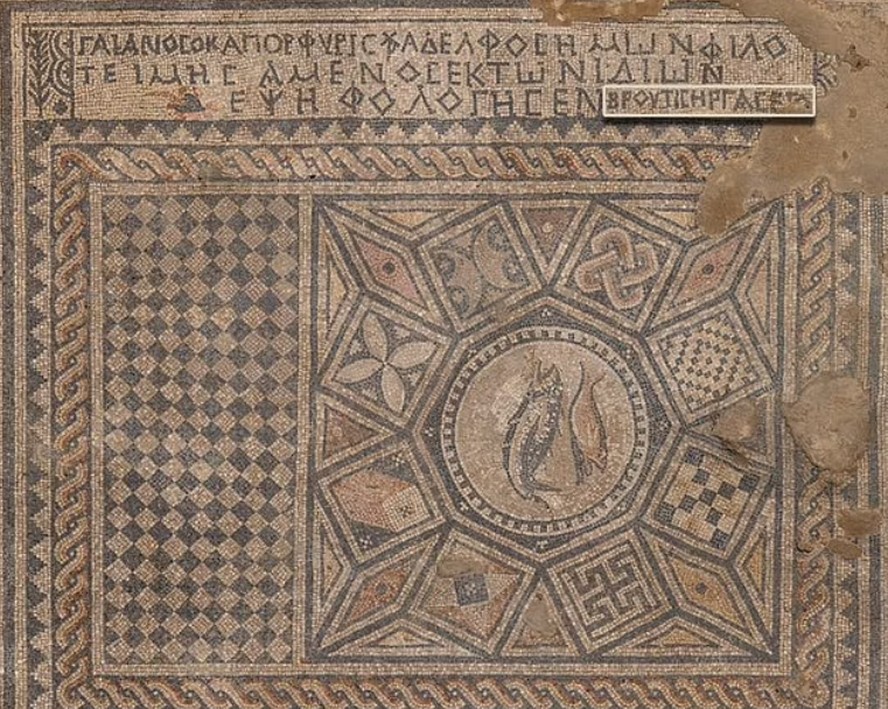 ΓΑΙΑΝΟϹΟΚΑΠΟΡΦΥΡΙϹ⳨ΑΔΕΛΦΟϹΗΜΩΝΦΙΛΟ
ΤΕΙΜΗϹΑΜΕΝΟϹΕΚΤΩΝΙΔΙΩΝ
ΕΨΗΦΟΛΟΓΗϹΕΝΒΡΟΥΤΙϹΗΡΓΑϹΕΤΑ